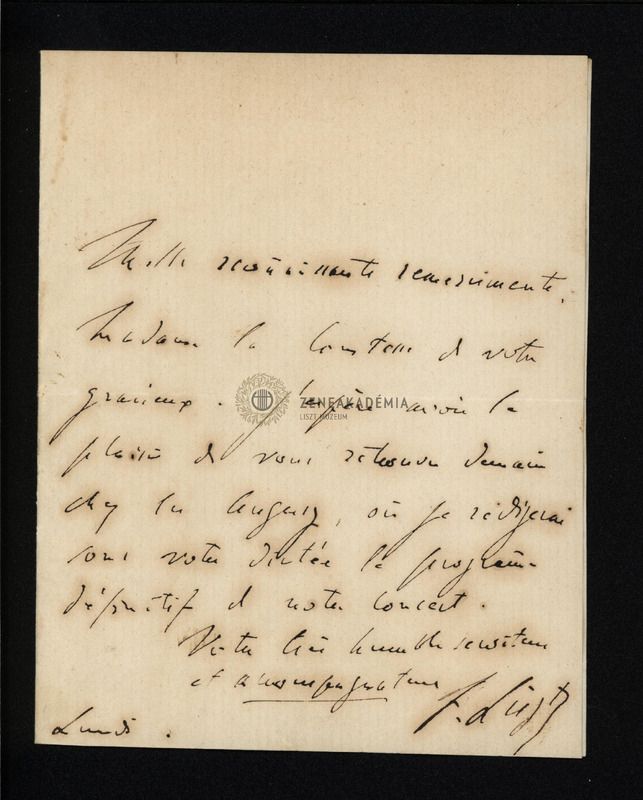 Mille reconnaissants remerciments,
Madame la Comtesse de votre
gracieux . J'espère avoir le
plaisir de vous retrouver demain
chez les Augusz, où je rédigerai
sous votre dictée le programme
définitif de notre Concert.
Votre très humble serviteur
et accompagnateur
F. Liszt
Lundi.
ZENEAKADÉMIA
LISZT MÚZEUM